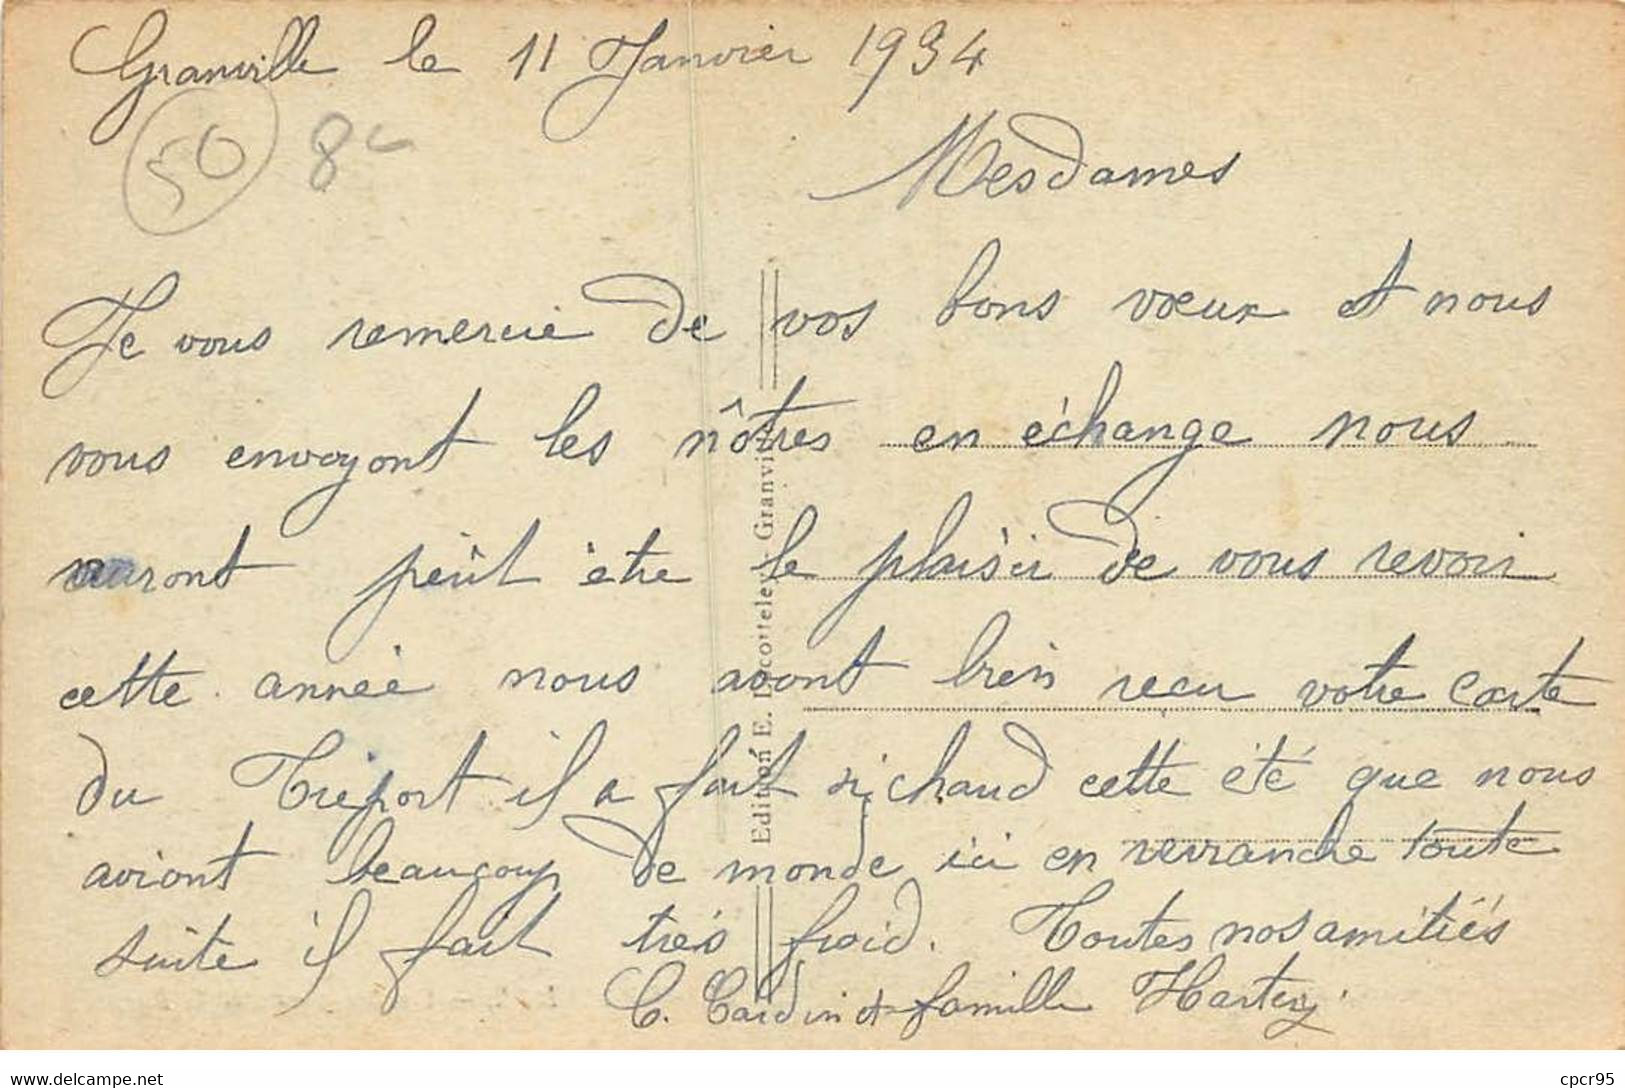 Granville le 11 Janvier 1934
50 8
Mesdames
Je vous remercie de vos bons vœux et nous
vous envoyont les nôtres en échange nous
auront peût être le plaisir de vous revoir
cette année nous avont bien reçu votre carte
du Tréport il a fait si chaud cette été que nous
aviont beaucoup de monde ici en revranche toute
suite il fait très froid. Toutes nos amitiés
C. Cardin et famille
Edition E. Granvil
www.delcampe.net
cpcr95